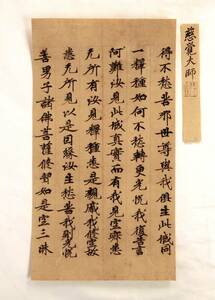 慈覺大師
得不愁苦耶世尊與我俱生此城同
一釋種如何不愁轉更光悅我復告言
阿難汝見此城真實而有我見空寂悉
无所有汝見釋種悉是親戚我修空故
悉无所見以是因緣汝生愁苦我更光悅
善男子諸佛菩薩修習如是空三昧